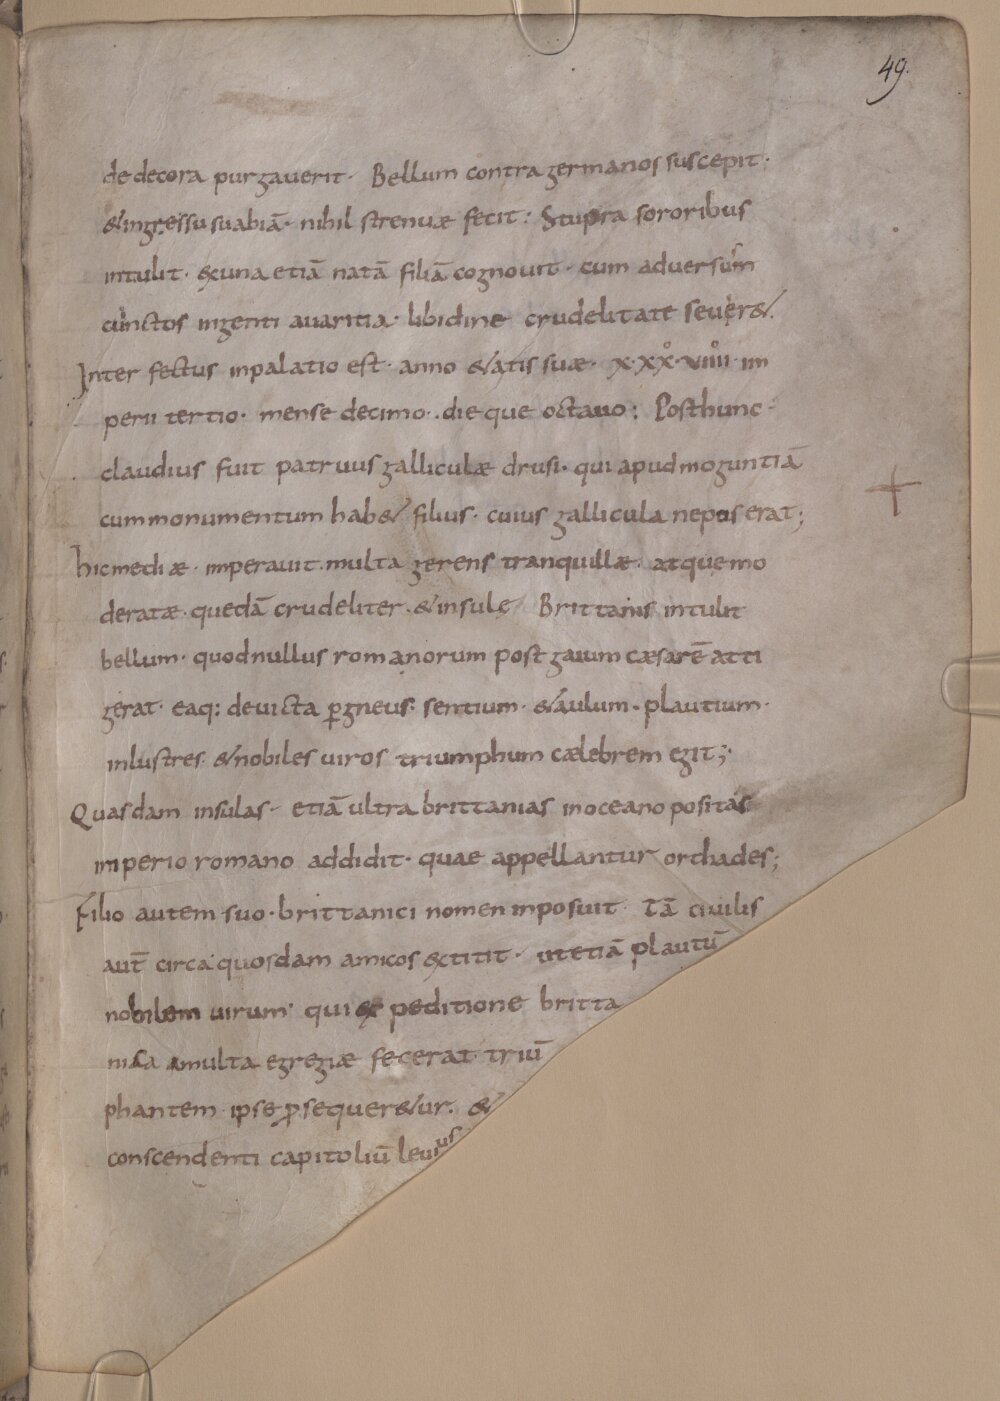 49.
dedecora purgauerit· Bellum contra germanos suscepit·
&ingressu suabiā· nihil strenuæ fecit: Stupra sororibus
intulit· exuna etiā natā filiā cognouit· cum aduersum
cunctos ingenti auaritia· libidine crudelitate seuer&.
Interfectus inpalatio est· anno &atis suæ· x·xx·viiii· im
perii tertio· mense decimo· dieque octauo: Posthunc·
claudius fuit patruus galliculæ drusi· qui apud moguntiā
cummonumentum hab& filius· cuius gallicula nepos erat;
hic mediæ· imperauit multa gerens tranquillæ· atque mo
deratæ· quedā crudeliter· &insulę Brittaniis intulit
bellum· quodnullus romanorum post gaium cæsarē atti
gerat· eaq: deuicta ꝑgneus· sentium· &aulum· plautium·
inlustres· &nobiles uiros triumphum cælebrem egit;
Quasdam insulas· etiā ultra brittanias inoceano positas
imperio romano addidit· quae appellantur orchades;
Filio autem suo· brittanici nomen inposuit· Tā ciuilis
aut̄ circa quosdam amicos extitit· utetiā plautū
nobilem uirum· qui expeditione britta
nica multa egregiæ fecerat triū
phantem ipse ꝓsequer&ur· &
conscendenti capitoliū leuus